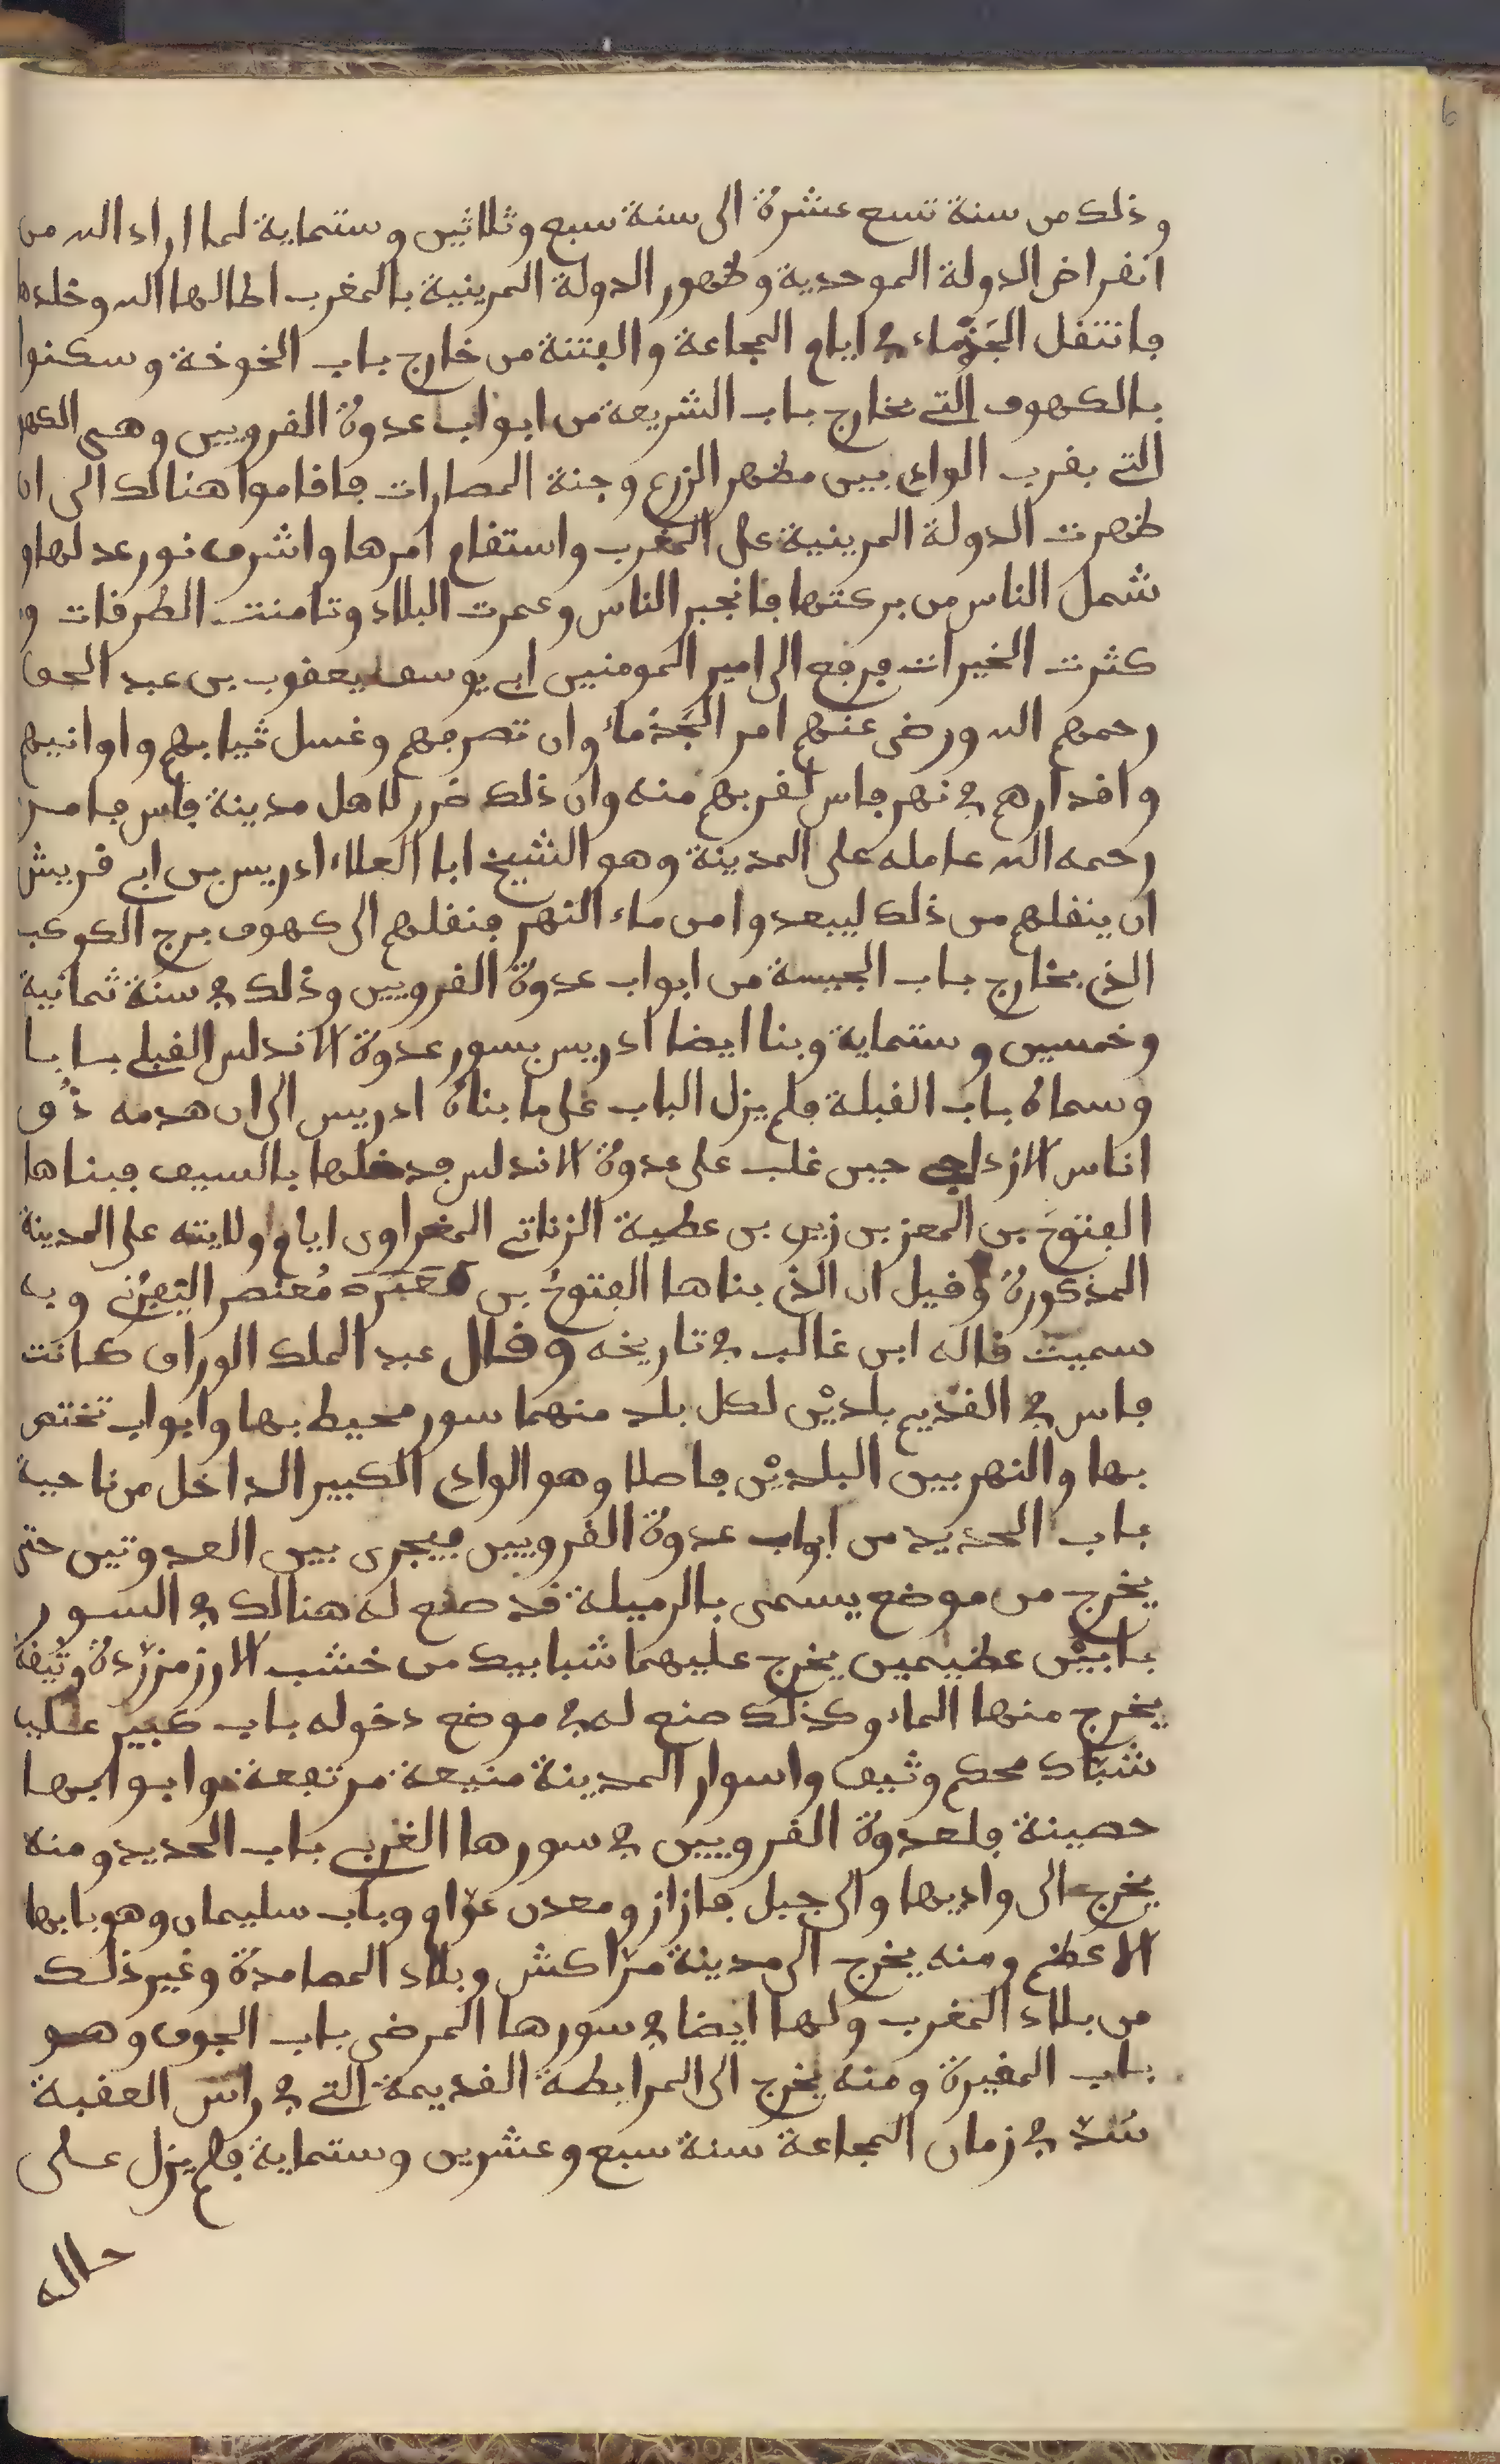 وذلك من سنة تسع عشرة الى سنة سبع وثلاثين وستماية لما اراد الله من
انقراض الدولة الموحدية وظهور الدولة المرينية بالمغرب اطالها الله وخلدها
فانتقل الجَذْماء في ايام المجاعة والفتنة من خارج باب الخوخة وسكنوا
بالكهوف التي بخارج باب الشريعة من ابواب عدوة القرويين وهي الكهو
التي بقرب الوادي بين مطهر الزرع وجنة المصارات فاقاموا هنالك الى ان
ظهرت الدولة المرينية على المغرب واستقام امرها واشرف نور عدلها و
شمل الناس من بركتها فانجبر الناس وعمرت البلاد وتامنت الطرقات و
كثرت الخيرات فرجع الى امير المومنين ابي يوسف يعقوب بن عبد الحق
رحمهم الله ورضى عنهم امر الجَذْماء وان تصرفهم وغسل ثيابهم واوانيهم
واقدارهم في نهر فاس لقربهم منه وان ذلك ضرر لاهل مدينة فاس فامر
رحمه الله عامله على المدينة وهو الشيخ ابا العلاء ادريس بن ابي قريش
ان ينقلهم من ذلك ليبعدوا من ماء النهر فنقلهم الى كهوف برج الكوكب
الذي بخارج باب الجيسة من ابواب عدوة القرويين وذلك في سنة ثمانية
وخمسين وستماية وبنا ايضا ادريس بسور عدوة الاندلس القبلي بابا
وسماه باب القبلة فلم يزل الباب على ما بناه ادريس الى ان هدمه دُو
اناس الازداجي حين غلب على عدوة الاندلس فدخلها بالسيف فبناها
الفتوحَ بن المعز بن زيري بن عطية الزناتي المغراوي ايام ولايته على المدينة
المذكورة وقيل ان الذي بناها الفتوحُ بن مُعتصر اليَفرُني وبه
سميت قاله ابن غالب في تاريخه وقال عبد الملك الوراق كانت
فاس في القديم بلديْن لكل بلد منهما سور محيط بها وابواب تختص
بها والنهر بين البلديْن فاصلا وهو الوادي الكبير الداخل من ناحية
باب الحديد من ابواب عدوة القرويين فيجرى بين العدوتين حتى
يخرج من موضع يسمى بالرميلة قد صنع له هنالك في السور
بابيْن عظيمين يخرج عليهما شبابيك من خشب الارز مزرّدة وثيقة
يخرج منها الماء وكذلك صنع له في موضع دخوله باب كبير عليه
شبّاك محكم وثيق واسوار المدينة منيعة مرتفعة وابوابها
حصينة فلعدوة القرويين في سورها الغربي باب الحديد ومنه
يخرج الى واديها والى جبل فازاز ومعدن عوّام وباب سليمان وهو بابها
الاعظم ومنه يخرج الى مدينة مرّاكش وبلاد المصامدة وغير ذلك
من بلاد المغرب ولها ايضا في سورها المرضى باب الجوف وهو
باب المقبرة ومنه يخرج الى المرابطة القديمة التي في راس العقبة
سُدّ في زمان المجاعة سنة سبع وعشرين وستماية فلم يزل على
حاله